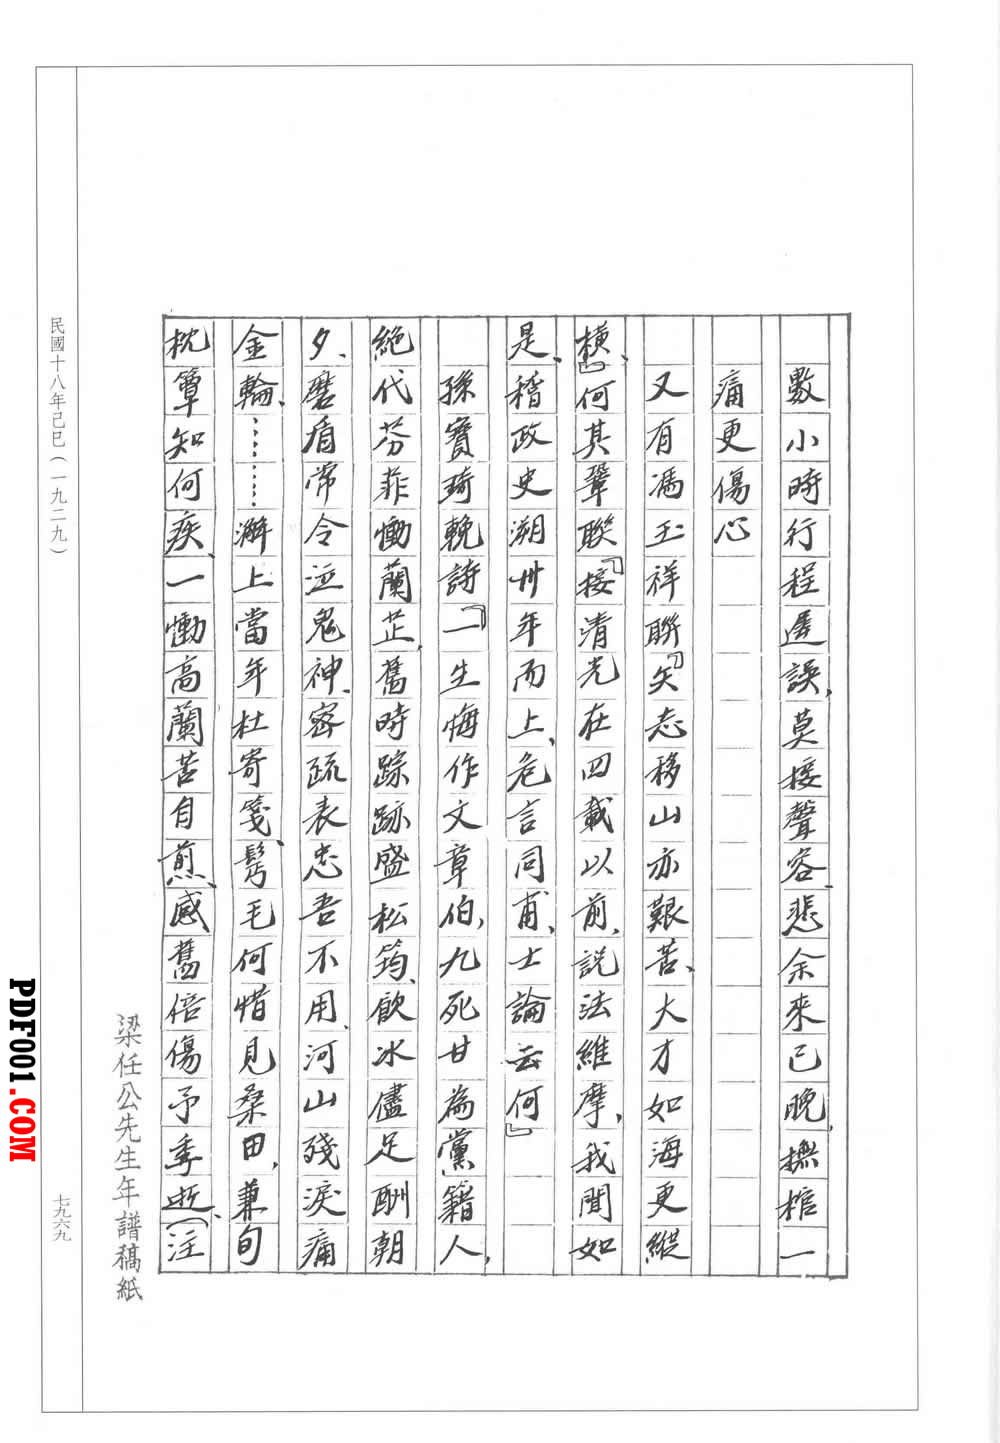 數小時行程遲誤，莫接聲容、悲余來已晚，撫棺一
痛更傷心
又有馮玉祥聯「矢志移山亦艱苦、大才如海更縱
橫、」何其鞏聯「接清光在四載以前，說法維摩，我聞如
是、稽政史溯卅年而上、危言同甫、士論云何」
孫寶琦輓詩「一生悔作文章伯，九死甘為黨籍人，
絕代芬菲慟蘭芷，舊時踪跡盛松筠、飲冰儘足酬朝
夕、磨盾常令泣鬼神、密疏表忠吾不用、河山殘淚痛
金輪、……澥上當年杜寄箋、髩毛何惜見桑田，兼旬
枕簟知何疾、一慟高蘭苦自煎、感舊倍傷予季逝、（注
民國十八年己巳（一九二九）
七九六九
梁任公先生年譜稿紙
PDF001.COM